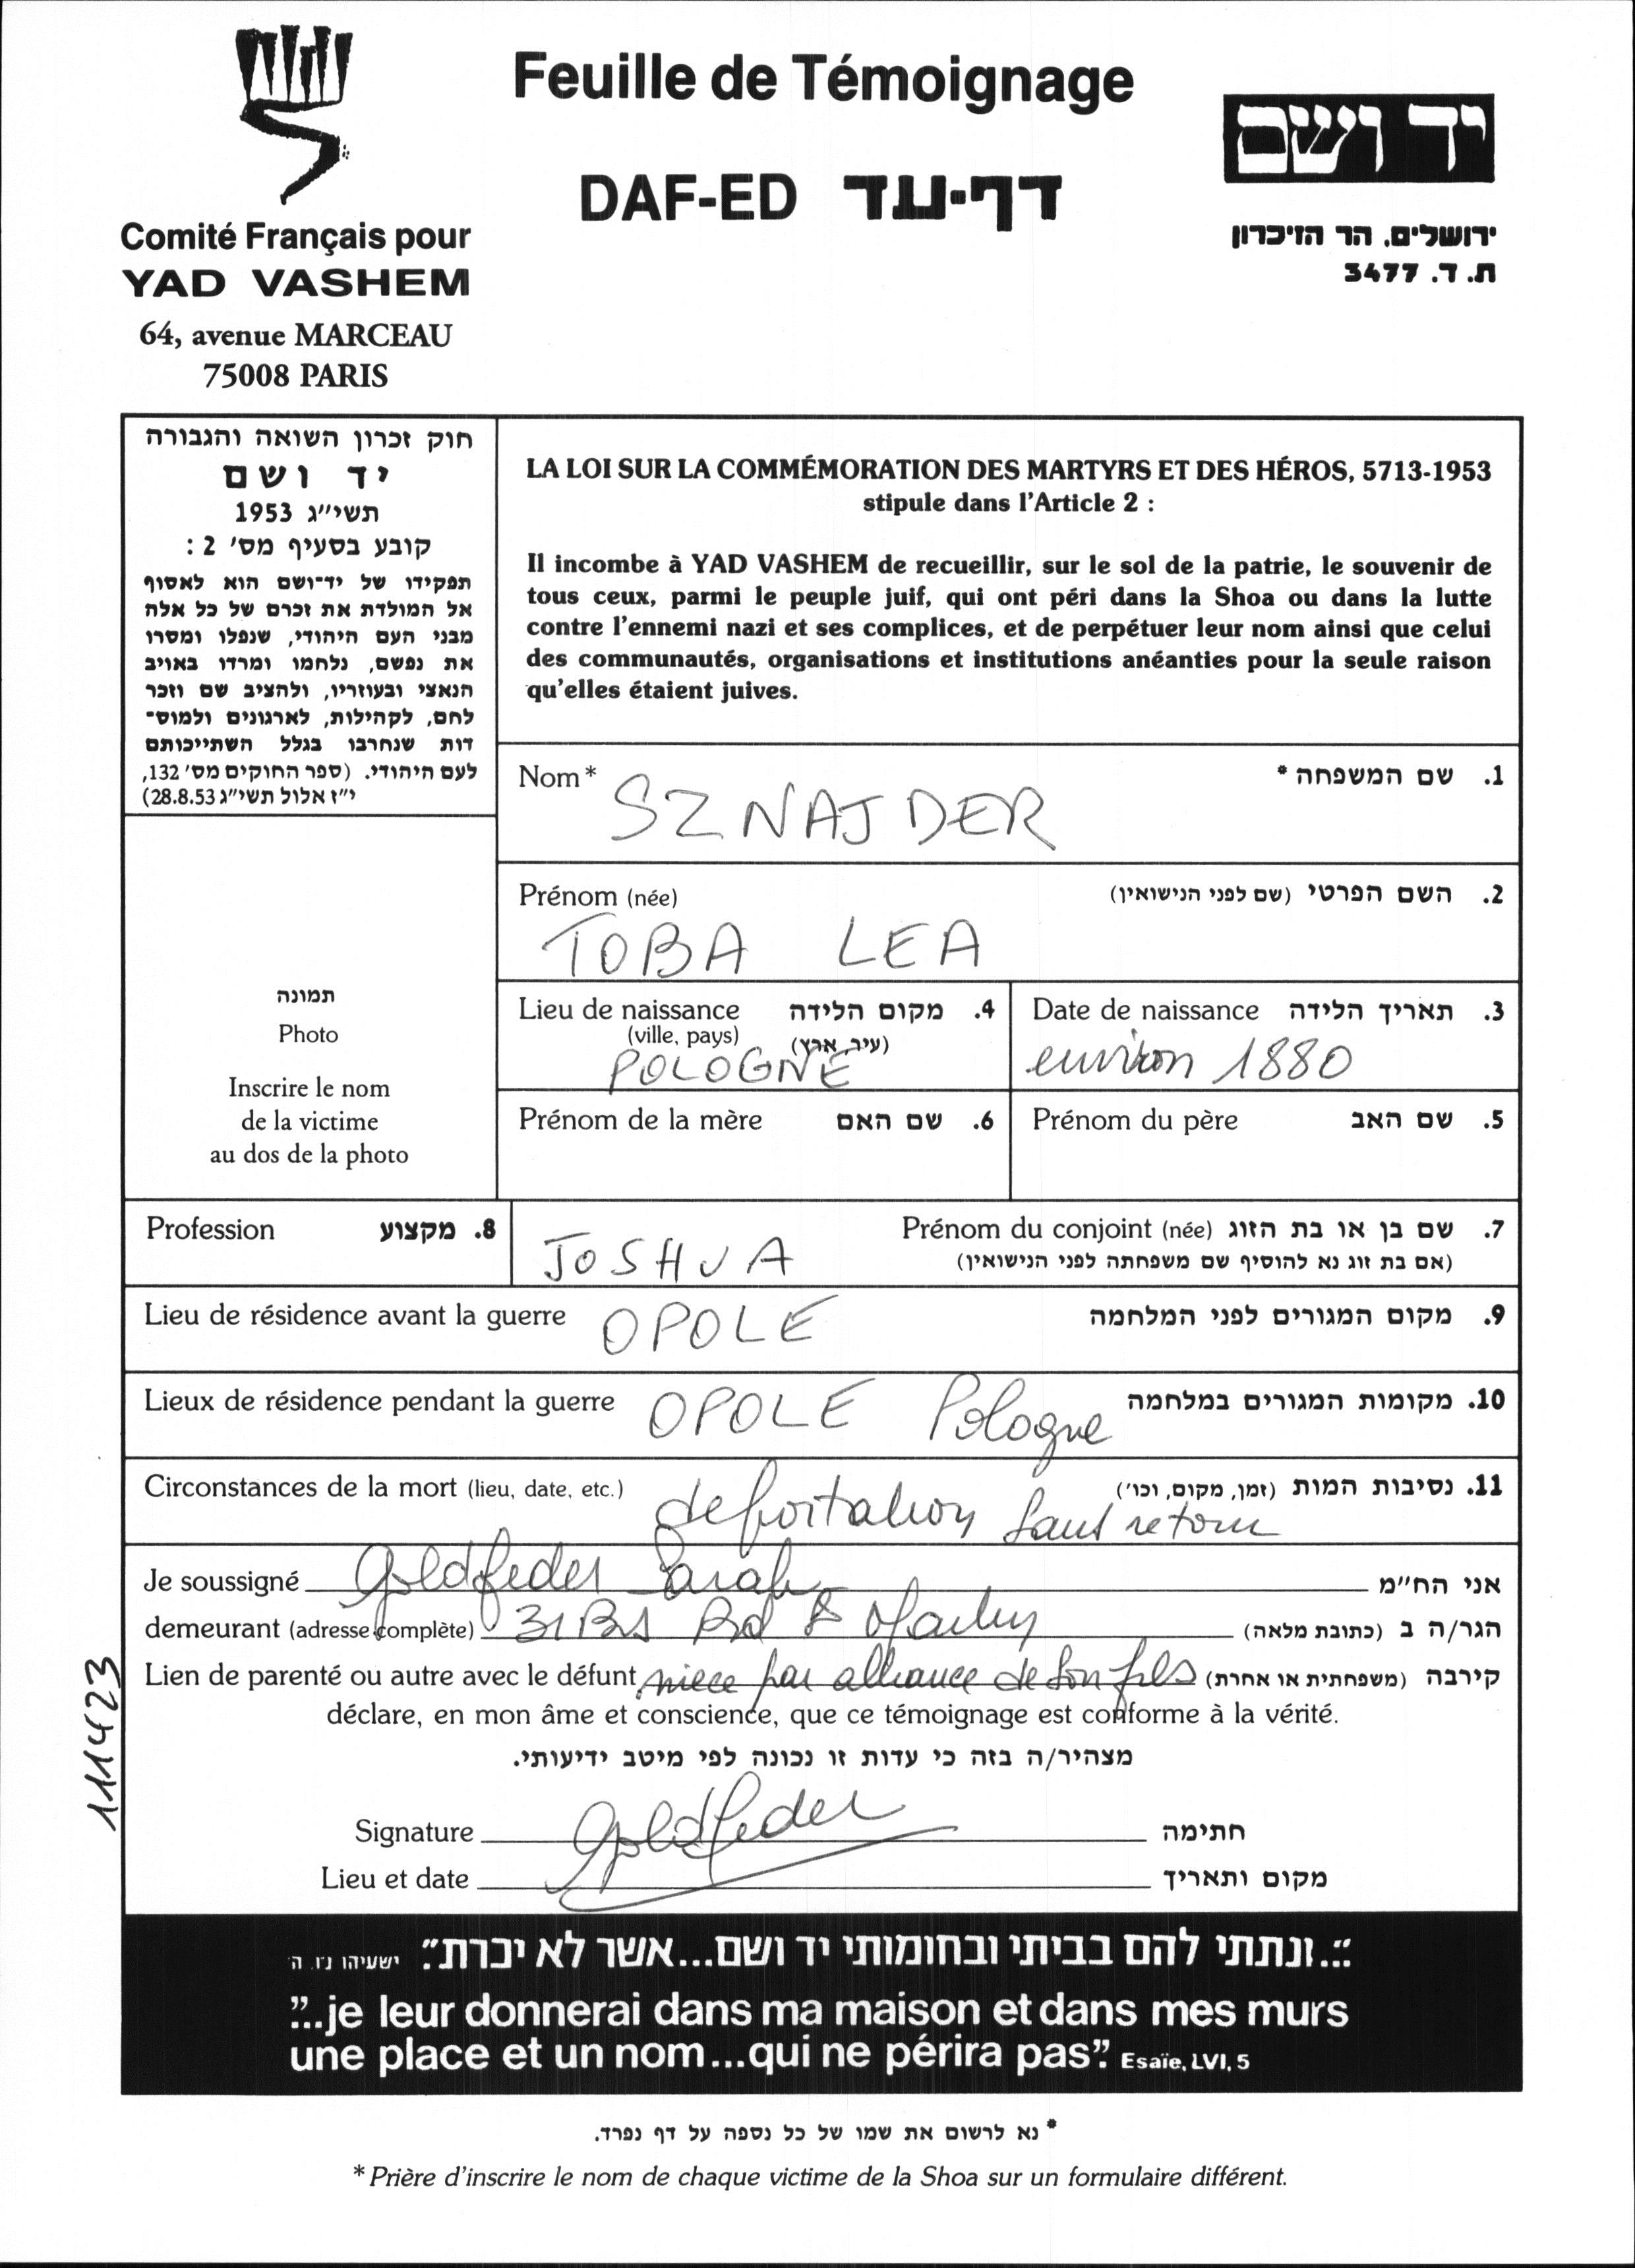 Feuille de Témoignage
DAF-ED דף-עד
Comité Français pour
YAD VASHEM
64, avenue MARCEAU
75008 PARIS
יד ושם
ירושלים, הר הזיכרון
ת. ד. 3477
חוק זכרון השואה והגבורה
יד ושם
תשי״ג 1953
קובע בסעיף מס׳ 2 :
תפקידו של יד־ושם הוא לאסוף
אל המולדת את זכרם של כל אלה
מבני העם היהודי, שנפלו ומסרו
את נפשם, נלחמו ומרדו באויב
הנאצי ובעוזריו, ולהציב שם וזכר
להם, לקהילות, לארגונים ולמוס־
דות שנחרבו בגלל השתייכותם
לעם היהודי. (ספר החוקים מס׳ 132,
י״ז אלול תשי״ג 28.8.53)
LA LOI SUR LA COMMÉMORATION DES MARTYRS ET DES HÉROS, 5713-1953
stipule dans l'Article 2 :
Il incombe à YAD VASHEM de recueillir, sur le sol de la patrie, le souvenir de
tous ceux, parmi le peuple juif, qui ont péri dans la Shoa ou dans la lutte
contre l'ennemi nazi et ses complices, et de perpétuer leur nom ainsi que celui
des communautés, organisations et institutions anéanties pour la seule raison
qu'elles étaient juives.
Nom* 1. שם המשפחה *
SZNAJDER
Prénom (née) 2. השם הפרטי (שם לפני הנישואין)
TOBA LEA
תמונה
Photo
Inscrire le nom
de la victime
au dos de la photo
Lieu de naissance 4. מקום הלידה
(ville, pays) (עיר, ארץ)
POLOGNE
Date de naissance 3. תאריך הלידה
environ 1880
Prénom de la mère 6. שם האם
Prénom du père 5. שם האב
Profession 8. מקצוע
Prénom du conjoint (née) 7. שם בן או בת הזוג
(אם בת זוג נא להוסיף שם משפחתה לפני הנישואין)
JOSHUA
Lieu de résidence avant la guerre OPOLE 9. מקום המגורים לפני המלחמה
Lieux de résidence pendant la guerre OPOLE Pologne 10. מקומות המגורים במלחמה
Circonstances de la mort (lieu, date, etc.) deportation sans retour 11. נסיבות המות (זמן, מקום, וכו׳)
Je soussigné Goldfeder Sarah אני הח״מ
demeurant (adresse complète) 31 Bis Bd St Martin הגר/ה ב (כתובת מלאה)
Lien de parenté ou autre avec le défunt nièce par alliance de son fils קירבה (משפחתית או אחרת)
déclare, en mon âme et conscience, que ce témoignage est conforme à la vérité.
מצהיר/ה בזה כי עדות זו נכונה לפי מיטב ידיעותי.
Signature Goldfeder חתימה
Lieu et date מקום ותאריך
111423
“...ונתתי להם בביתי ובחומותי יד ושם...אשר לא יכרת״. ישעיהו נ״ו, ה׳
”...je leur donnerai dans ma maison et dans mes murs
une place et un nom...qui ne périra pas”. Esaïe, LVI, 5
* נא לרשום את שמו של כל נספה על דף נפרד.
* Prière d'inscrire le nom de chaque victime de la Shoa sur un formulaire différent.